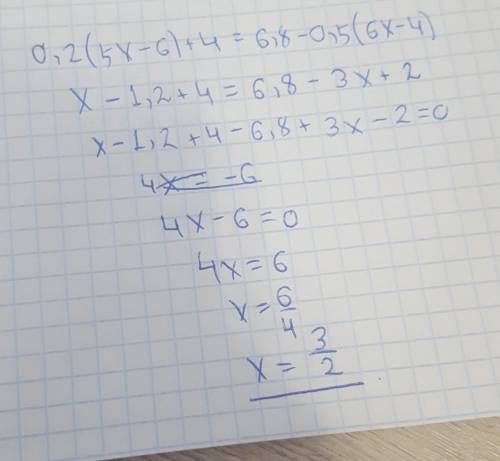 0,2(5x-6)+4=6,8-0,5(6x-4)
x-1,2+4=6,8-3x+2
x-1,2+4-6,8+3x-2=0
4x=-6
4x-6=0
4x=6
x=6/4
x=3/2